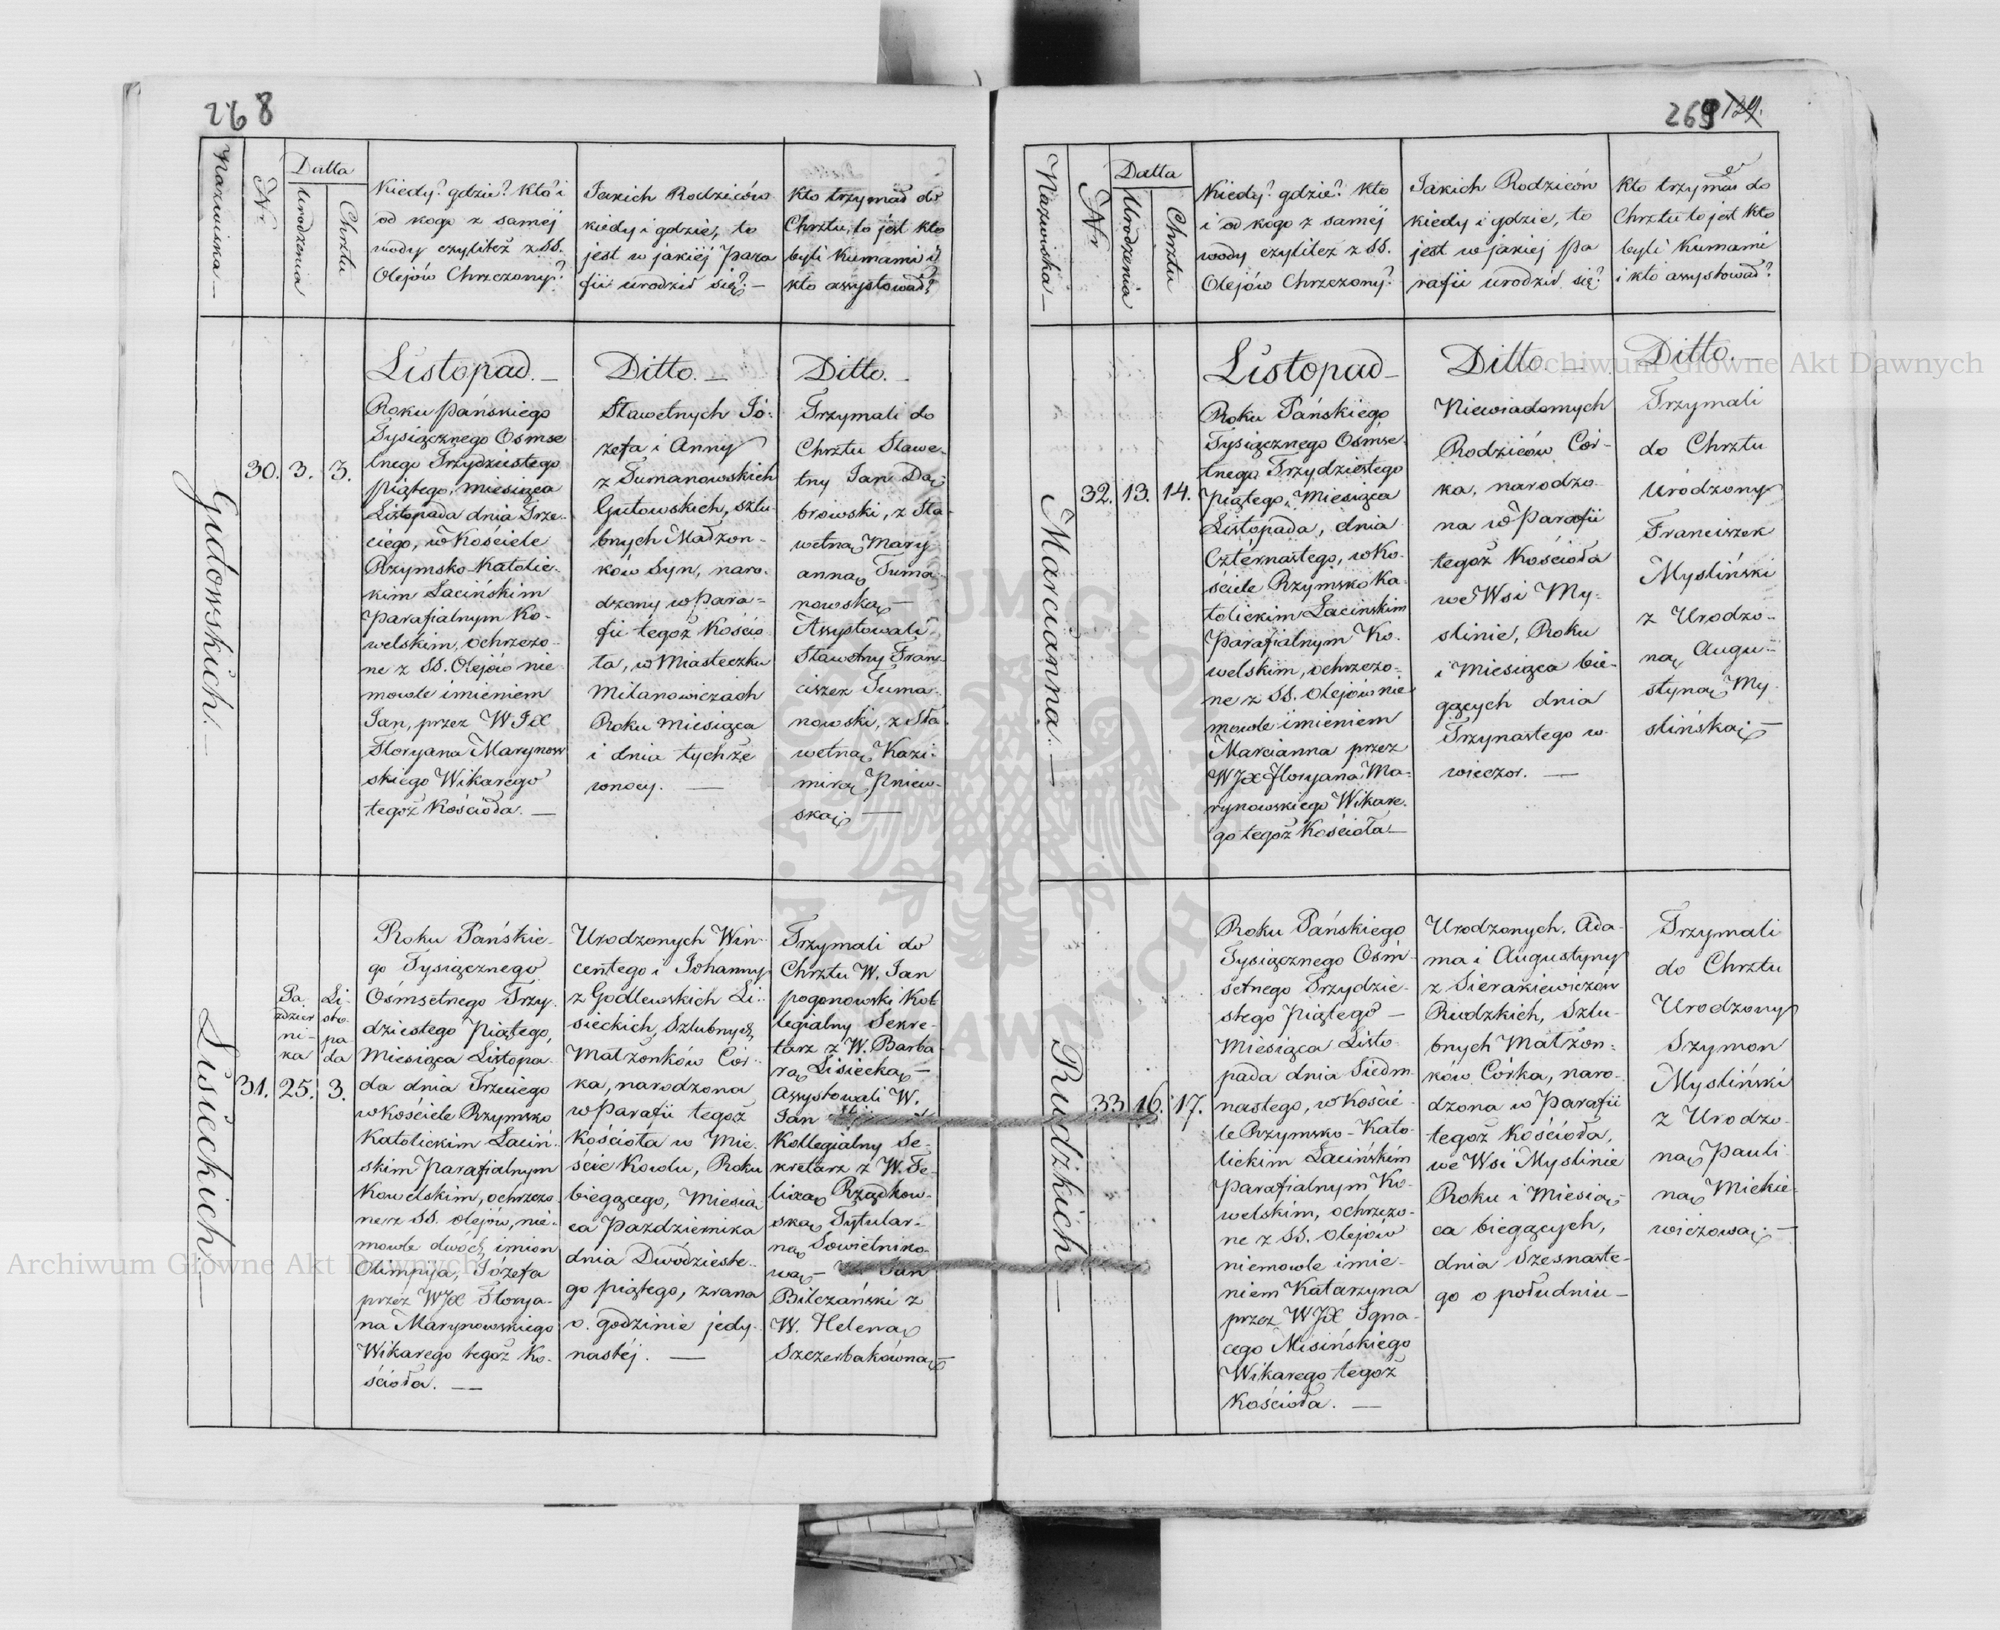 268
Nazwiska —
Nr.
Datta
Urodzenia
Chrztu
Kiedy? gdzie? kto i
od kogo z samej
wody czyliteż z SS.
Olejów Chrzczony?
Jakich Rodziców
kiedy i gdzie, to
jest w jakiéj para
fii urodził się? —
Kto trzymał do
Chrztu, to jest kto
byli Kumami i
kto assystował?
Gutowskich. —
30. 3. 3.
Listopad. —
Roku Pańskiego
Tysiącznego Osmse
tnego Trzydziestego
piątego, miesiąca
Listopada dnia Trze-
ciego, w Kościele
Rzymsko-Katolic-
kim Łacińskim
Parafialnym Ko-
welskim, ochrzczo-
ne z SS. Olejów nie
mowle imieniem
Jan, przez WJX
Floryana Marynow
skiego Wikarego
tegoż Kościoła. —
Ditto. —
Sławetnych Jó-
zefa i Anny
z Tumanowskich
Gutowskich, szlu-
bnych Małżon-
ków Syn, naro-
dzony w Para-
fii tegoż Kościo
ła, w Miasteczku
Milanowiczach
Roku miesiąca
i dnia tychże
w nocy. —
Ditto. —
Trzymali do
Chrztu Sławe-
tny Jan Dą
browski, z Sła-
wetną Mary
anną Tuma-
nowską —
Assystowali
Sławetny Fran-
ciszek Tuma-
nowski, z Sła-
wetną Kazi-
mirą Pniew-
ską —
Lisieckich. —
31.
Pa
ździer
ni-
ka
25.
Li-
sto-
pa
da
3.
Roku Pańskie-
go Tysiącznego
Ośmsetnego Trzy-
dziestego Piątego,
Miesiąca Listopa-
da dnia Trzeciego
w Kościele Rzymsko
Katolickim Łaciń-
skim Parafialnym
Kowelskim, ochrzczo
ne z SS. Olejów, nie-
mowle dwóch imion
Olimpija, Józefa
przez WJX Florya-
na Marynowskiego
Wikarego tegoż Ko-
ścioła. —
Urodzonych Win-
centego i Johanny
z Godlewskich Li-
sieckich, Szlubnych
Małżonków Cór-
ka, narodzona
w Parafii tegoż
Kościoła w Mie-
ście Kowlu, Roku
biegącego, Miesią
ca Października
dnia Dwódzieste-
go piątego, zrana
o godzinie jedy-
nastéj. —
Trzymali do
Chrztu W. Jan
pogonowski Kol
legialny Sekre-
tarz z W. Barba-
rą Lisiecką —
Assystowali W.
Jan
Kollegialny Se-
kretarz z W. Fe-
lixą Rządkow-
ską Tytular-
ną Sowietniko-
wą — Jan
Bilczański z
W. Heleną
Szczerbakówną —
269 129.
Nazwiska —
Nr
Datta
Urodzenia
Chrztu
Kiedy? gdzie? kto
i od kogo z samej
wody czyliteż z SS.
Olejów Chrzczony?
Jakich Rodziców
kiedy i gdzie, to
jest w jakiej pa
rafii urodził się?
Kto trzymał do
Chrztu to jest kto
byli Kumami
i kto assystował?
Marcianna. —
32. 13. 14.
Listopad —
Roku Pańskiego
Tysiącznego Ośmse-
tnego Trzydziestego
Piątego, Miesiąca
Listopada, dnia
Czternastego, w Ko-
ściele Rzymsko Ka-
tolickim Łacińskim
Parafialnym Ko-
welskim, ochrzczo-
ne z SS. Olejów nie
mowle imieniem
Marcianna przez
WJX Floryana Ma-
rynowskiego Wikare-
go tegoż Kościoła —
Ditto. —
Niewiadomych
Rodziców Cór-
ka, narodzo-
na w Parafii
tegoż Kościoła
we Wsi My-
slinie, Roku
i Miesiąca bie-
gących dnia
Trzynastego w
wieczor. —
Ditto. —
Trzymali
do Chrztu
Urodzony
Franciszek
Mysliński
z Urodzo-
ną Augu-
styną My-
slińską —
Rudzkich —
33 16. 17.
Roku Pańskiego
Tysiącznego Ośm-
setnego Trzydzie-
stego piątego —
Miesiąca Listo-
pada dnia Siedm
nastego, w Kości-
le Rzymsko-Kato-
lickim Łacińskim
Parafialnym Ko-
welskim, ochrzczo-
ne z SS. Olejów
niemowle imie-
niem Katarzyna
przez WJX Igna-
cego Misińskiego
Wikarego tegoż
Kościoła. —
Urodzonych. Ada-
ma i Augustyny
z Sierakiewiczów
Rudzkich, Szlu-
bnych Małżon-
ków Córka, naro-
dzona w Parafii
tegoż Kościoła,
we Wsi Myslinie
Roku i Miesią-
ca biegących,
dnia Szesnaste-
go o południu —
Trzymali
do Chrztu
Urodzony
Szymon
Mysliński
z Urodzo-
ną Pauli
ną Mickie-
wiczową —
Archiwum Główne Akt Dawnych
Archiwum Główne Akt Dawnych